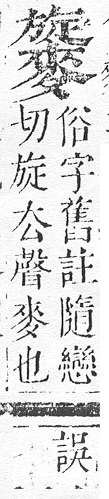 俗字舊註隨戀
切旋厺聲麥也
誤